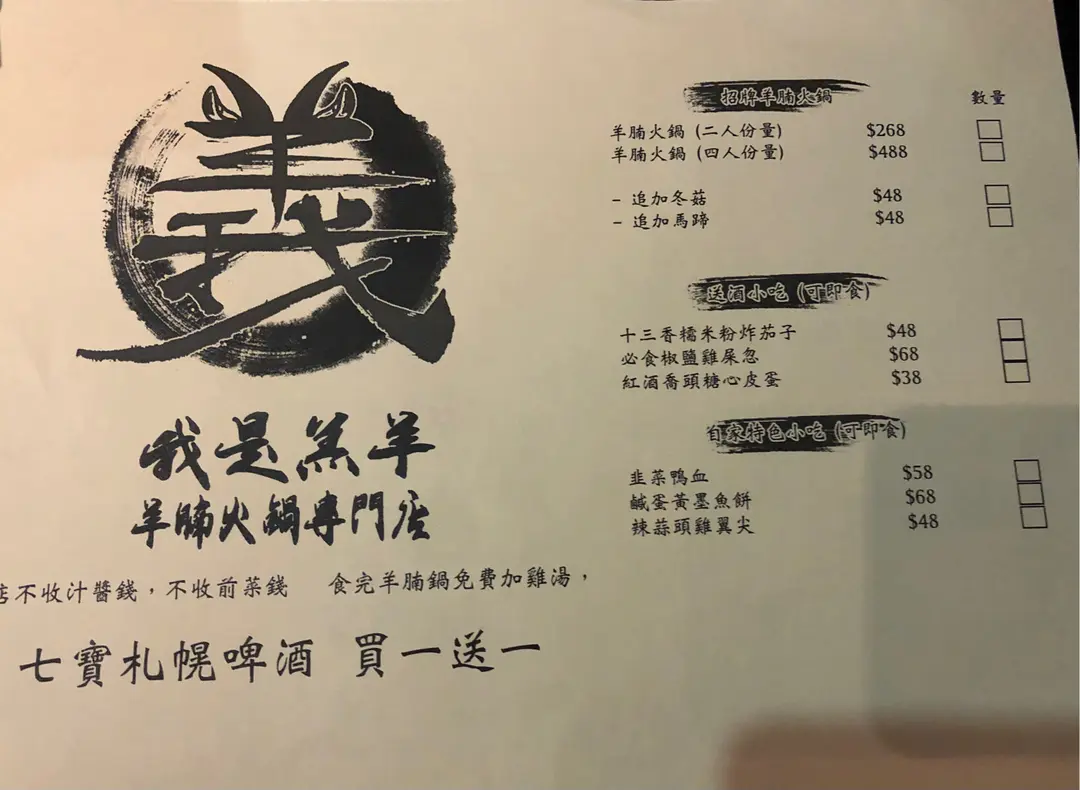 義
我是羔羊
羊腩火鍋專門店
店不收汁醬錢，不收前菜錢 食完羊腩鍋免費加雞湯，
七寶札幌啤酒 買一送一
招牌羊腩火鍋 數量
羊腩火鍋 (二人份量) $268
羊腩火鍋 (四人份量) $488
- 追加冬菇 $48
- 追加馬蹄 $48
送酒小吃 (可即食)
十三香糯米粉炸茄子 $48
必食椒鹽雞屎忽 $68
紅酒喬頭糖心皮蛋 $38
自家特色小吃 (可即食)
韭菜鴨血 $58
鹹蛋黃墨魚餅 $68
辣蒜頭雞翼尖 $48